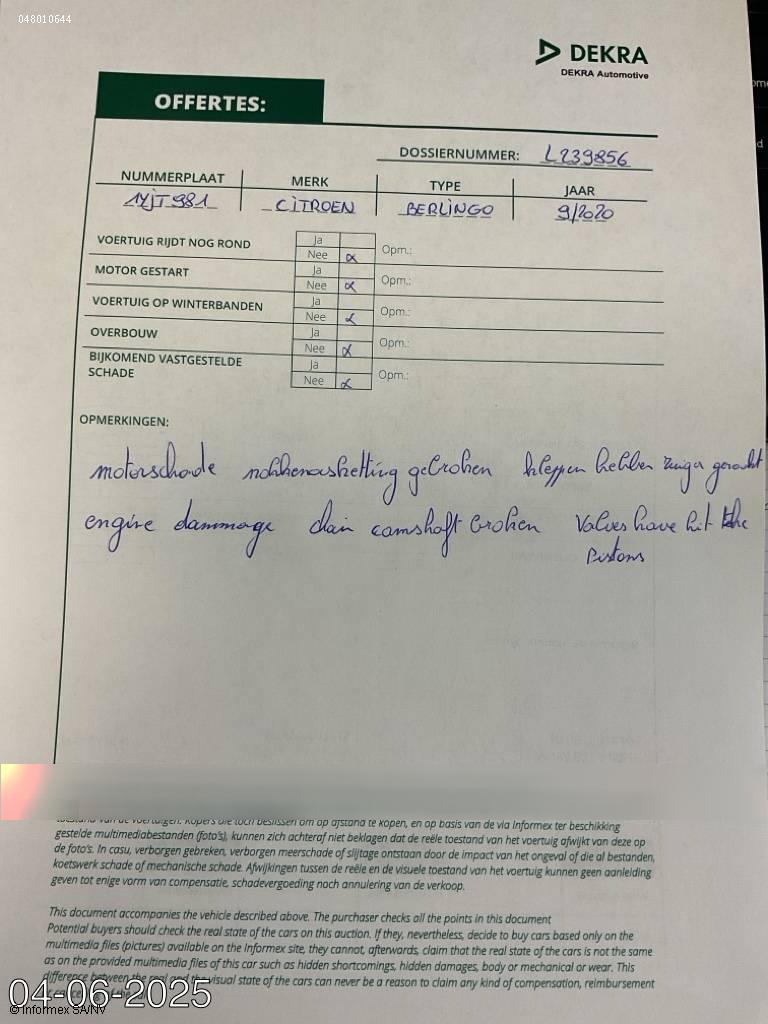 048010644
DEKRA
DEKRA Automotive
OFFERTES:
DOSSIERNUMMER: L239856
NUMMERPLAAT MERK TYPE JAAR
1YJT981 CITROEN BERLINGO 9/2020
VOERTUIG RIJDT NOG ROND Ja
Nee x Opm.:
MOTOR GESTART Ja
Nee x Opm.:
VOERTUIG OP WINTERBANDEN Ja
Nee x Opm.:
OVERBOUW Ja
Nee x Opm.:
BIJKOMEND VASTGESTELDE Ja
SCHADE Nee x Opm.:
OPMERKINGEN:
motorschade nokkenasketting gebroken kleppen hebben zuiger geraakt
engine dammage chain camshaft broken Valves have hit the
Pistons
toestand van de voertuigen. Kopers die toch beslissen om op afstand te kopen, en op basis van de via Informex ter beschikking
gestelde multimediabestanden (foto's), kunnen zich achteraf niet beklagen dat de reële toestand van het voertuig afwijkt van deze op
de foto's. In casu, verborgen gebreken, verborgen meerschade of slijtage ontstaan door de impact van het ongeval of die al bestanden,
koetswerk schade of mechanische schade. Afwijkingen tussen de reële en de visuele toestand van het voertuig kunnen geen aanleiding
geven tot enige vorm van compensatie, schadevergoeding noch annulering van de verkoop.
This document accompanies the vehicle described above. The purchaser checks all the points in this document
Potential buyers should check the real state of the cars on this auction. If they, nevertheless, decide to buy cars based only on the
multimedia files (pictures) available on the Informex site, they cannot, afterwards, claim that the real state of the cars is not the same
as on the provided multimedia files of this car such as hidden shortcomings, hidden damages, body or mechanical or wear. This
difference between the real and the visual state of the cars can never be a reason to claim any kind of compensation, reimbursement
04-06-2025
© Informex SA/NV